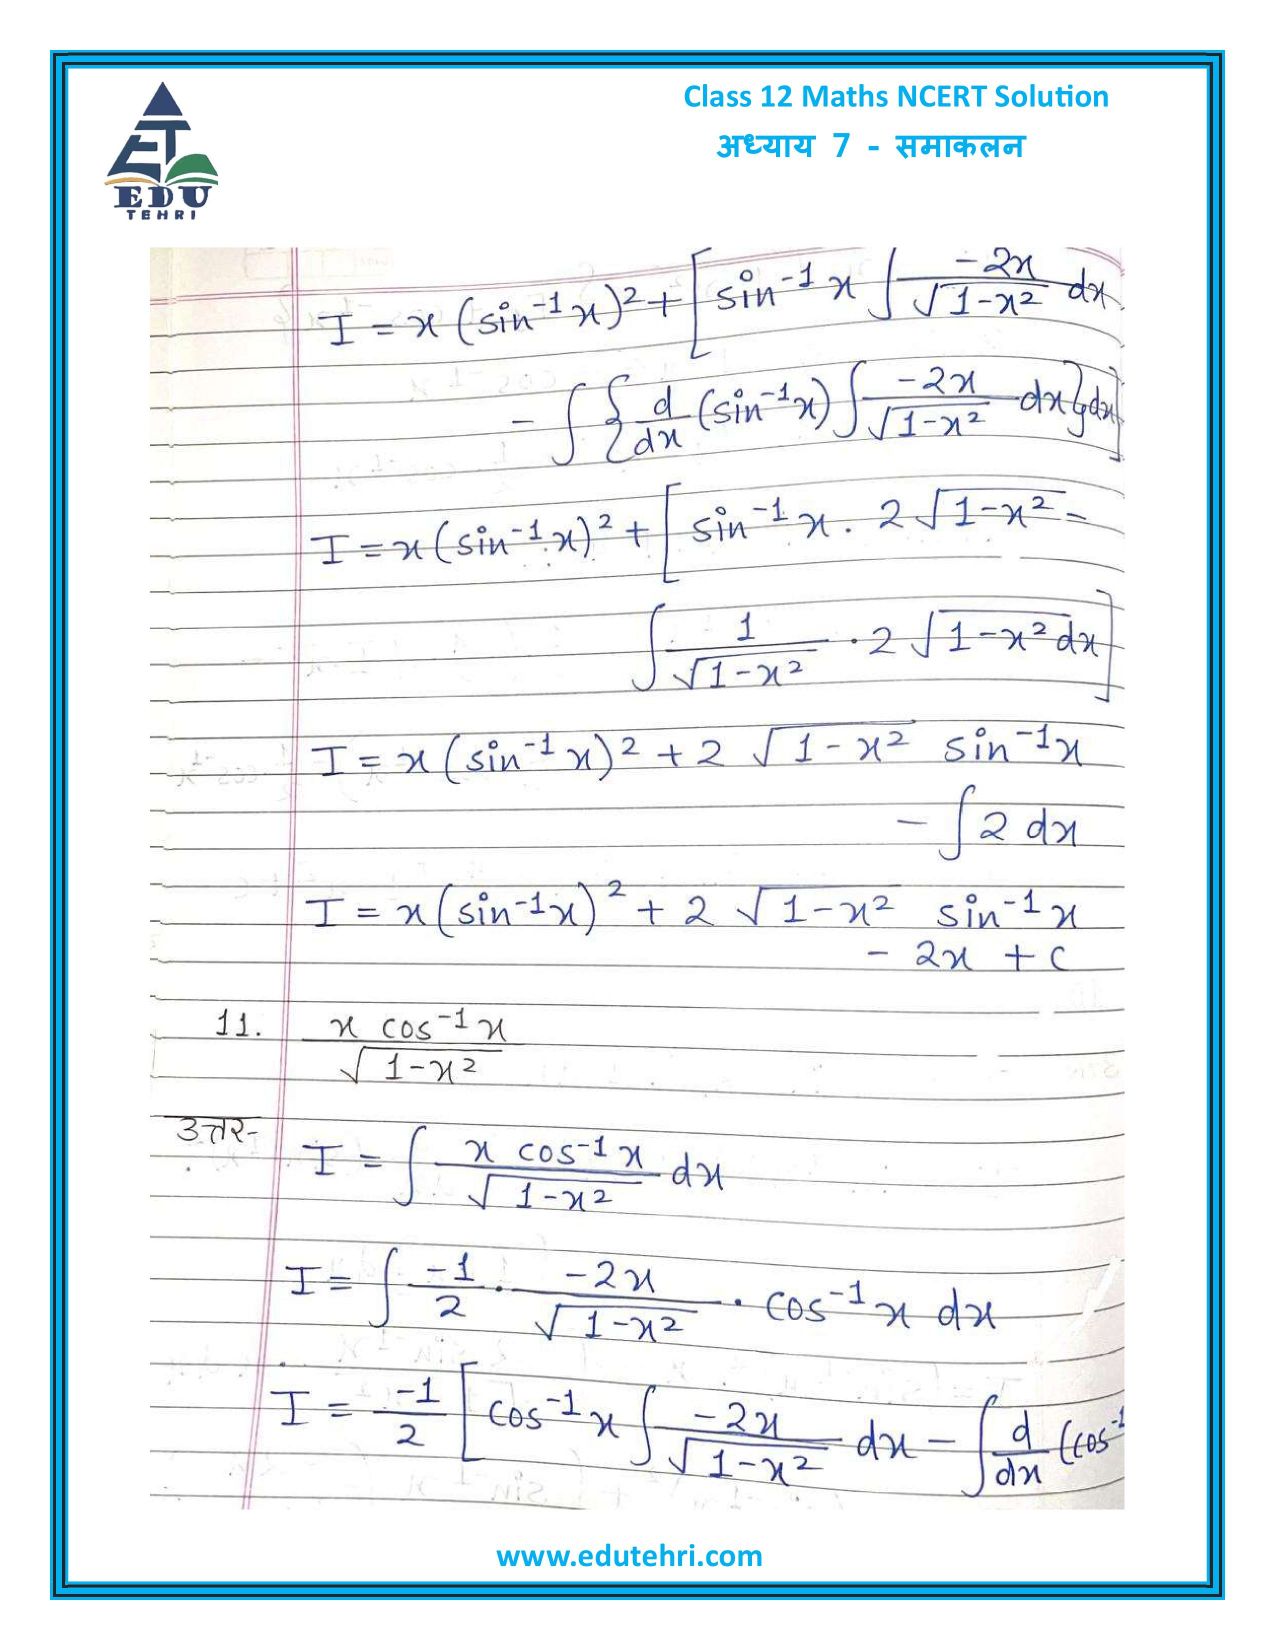 Class 12 Maths NCERT Solution
अध्याय 7 - समाकलन
EDU
TEHRI
I = x (sin⁻¹ x)² + [ sin⁻¹ x ∫ -2x/√(1-x²) dx
- ∫ { d/dx (sin⁻¹x) ∫ -2x/√(1-x²) dx } dx ]
I = x (sin⁻¹ x)² + [ sin⁻¹ x . 2 √(1-x²) -
∫ 1/√(1-x²) . 2 √(1-x²) dx ]
I = x (sin⁻¹ x)² + 2 √(1-x²) sin⁻¹x
- ∫ 2 dx
I = x (sin⁻¹x)² + 2 √(1-x²) sin⁻¹x
- 2x + c
11. x cos⁻¹x / √(1-x²)
उत्तर- I = ∫ x cos⁻¹x / √(1-x²) dx
I = ∫ -1/2 . -2x/√(1-x²) . cos⁻¹x dx
I = -1/2 [ cos⁻¹x ∫ -2x/√(1-x²) dx - ∫ d/dx (cos⁻¹
www.edutehri.com